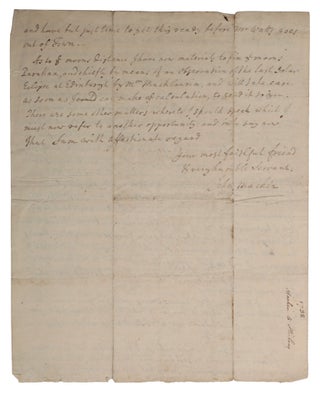 and have but just time to get this ready before Mr Watts goes
out of Town.
As to ye moons Distance I have new materials to fix ye moons
Parallax, and chiefly by means of an Observation of the last Solar
Eclipse at Edinburgh by Mr MacLaurin, and will take care
as soon as I can make ye calculation, to send it to You.
There are some other matters whereto I shou'd speak which I
must now refer to another opportunity and only say now
that I am with affectionate regard
Your most faithful friend
& very humble Servant,
John Machin
1738
Machin to